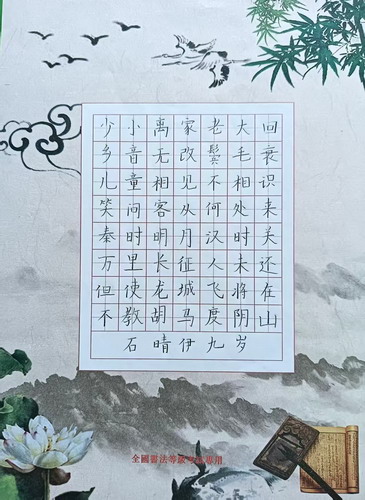 少小离家老大回
乡音无改鬓毛衰
儿童相见不相识
笑问客从何处来
秦时明月汉时关
万里长征人未还
但使龙城飞将在
不教胡马度阴山
石晴伊九岁
全國書法等級考試專用